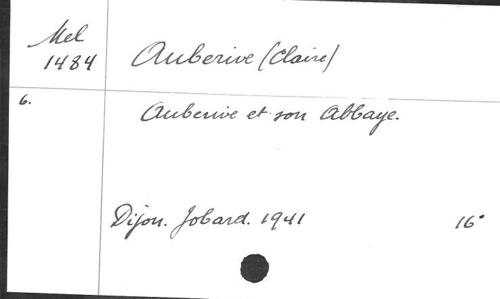 Mel
1484
Auberive (Claire)
6.
Auberive et son Abbaye.
Dijon. Jobard. 1941
16°